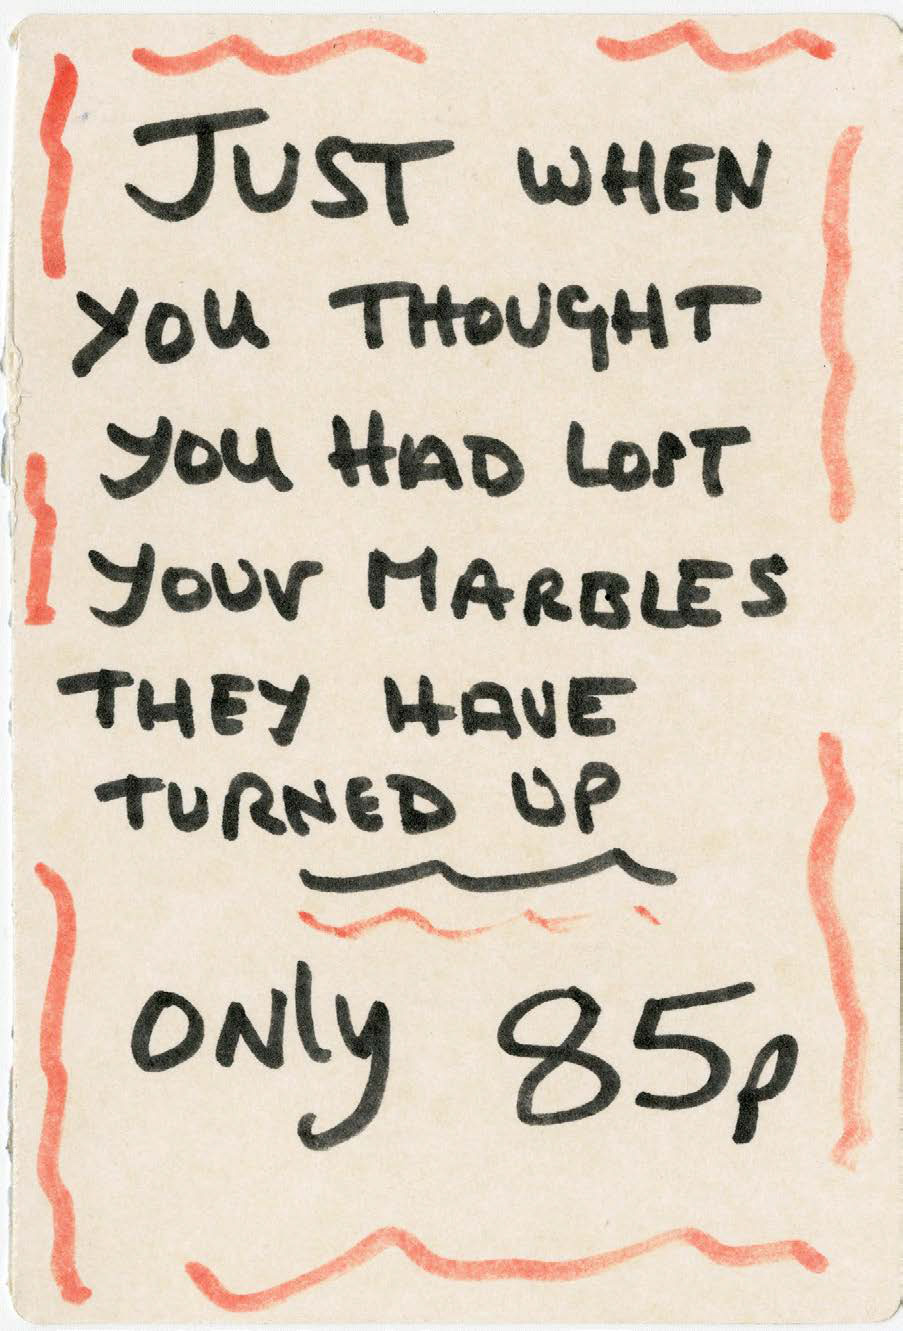 JUST WHEN
YOU THOUGHT
YOU HAD LOST
YOUr MARBLES
THEY HAVE
TURNED UP
only 85p